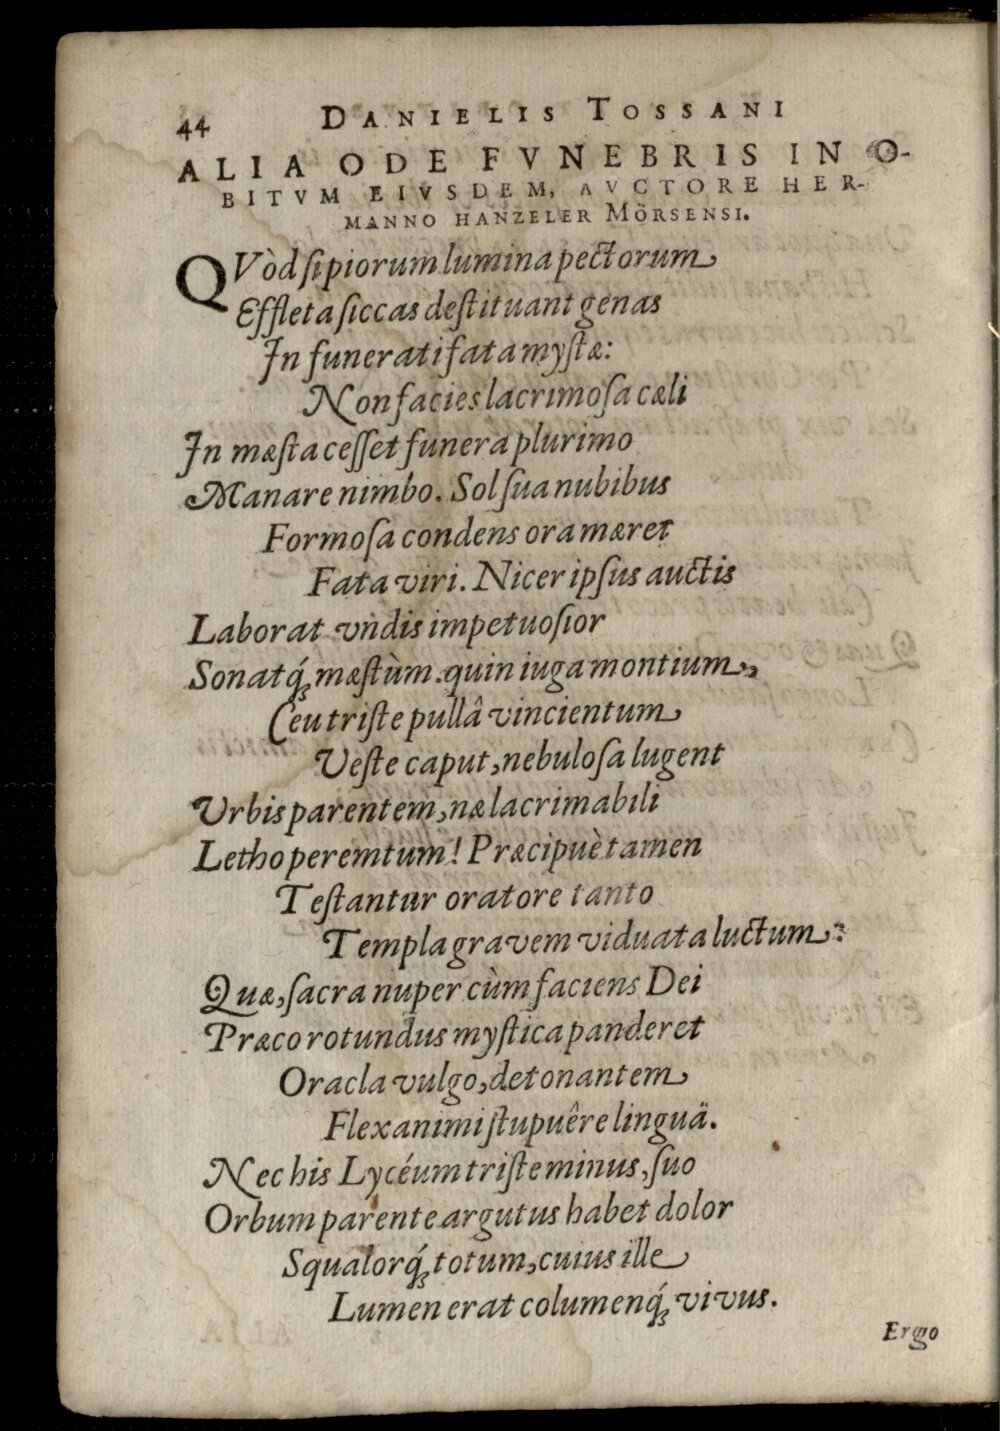 44 DANIELIS TOSSANI
ALIA ODE FVNEBRIS IN O-
BITVM EIVSDEM, AVCTORE HER-
MANNO HANZELER MÖRSENSI.
QVòd si piorum lumina pectorum
Effleta siccas destituant genas
In funerati fata mystæ:
Non facies lacrimosa cæli
In mæsta cesset funera plurimo
Manare nimbo. Sol sua nubibus
Formosa condens ora mæret
Fata viri. Nicer ipsus auctis
Laborat vndis impetuosior
Sonatq́; mæstùm. quin iuga montium,
Ceu triste pullâ vincientum
Veste caput, nebulosa lugent
Vrbis parentem, næ lacrimabili
Letho peremtum! Præcipuè tamen
Testantur oratore tanto
Templa gravem viduata luctum:
Quæ, sacra nuper cùm faciens Dei
Præco rotundus mystica panderet
Oracla vulgo, detonantem
Flexanimi stupuêre linguä.
Nec his Lycéum triste minus, suo
Orbum parente argutus habet dolor
Squalorq́; totum, cuius ille
Lumen erat columenq́; vivus.
Ergo